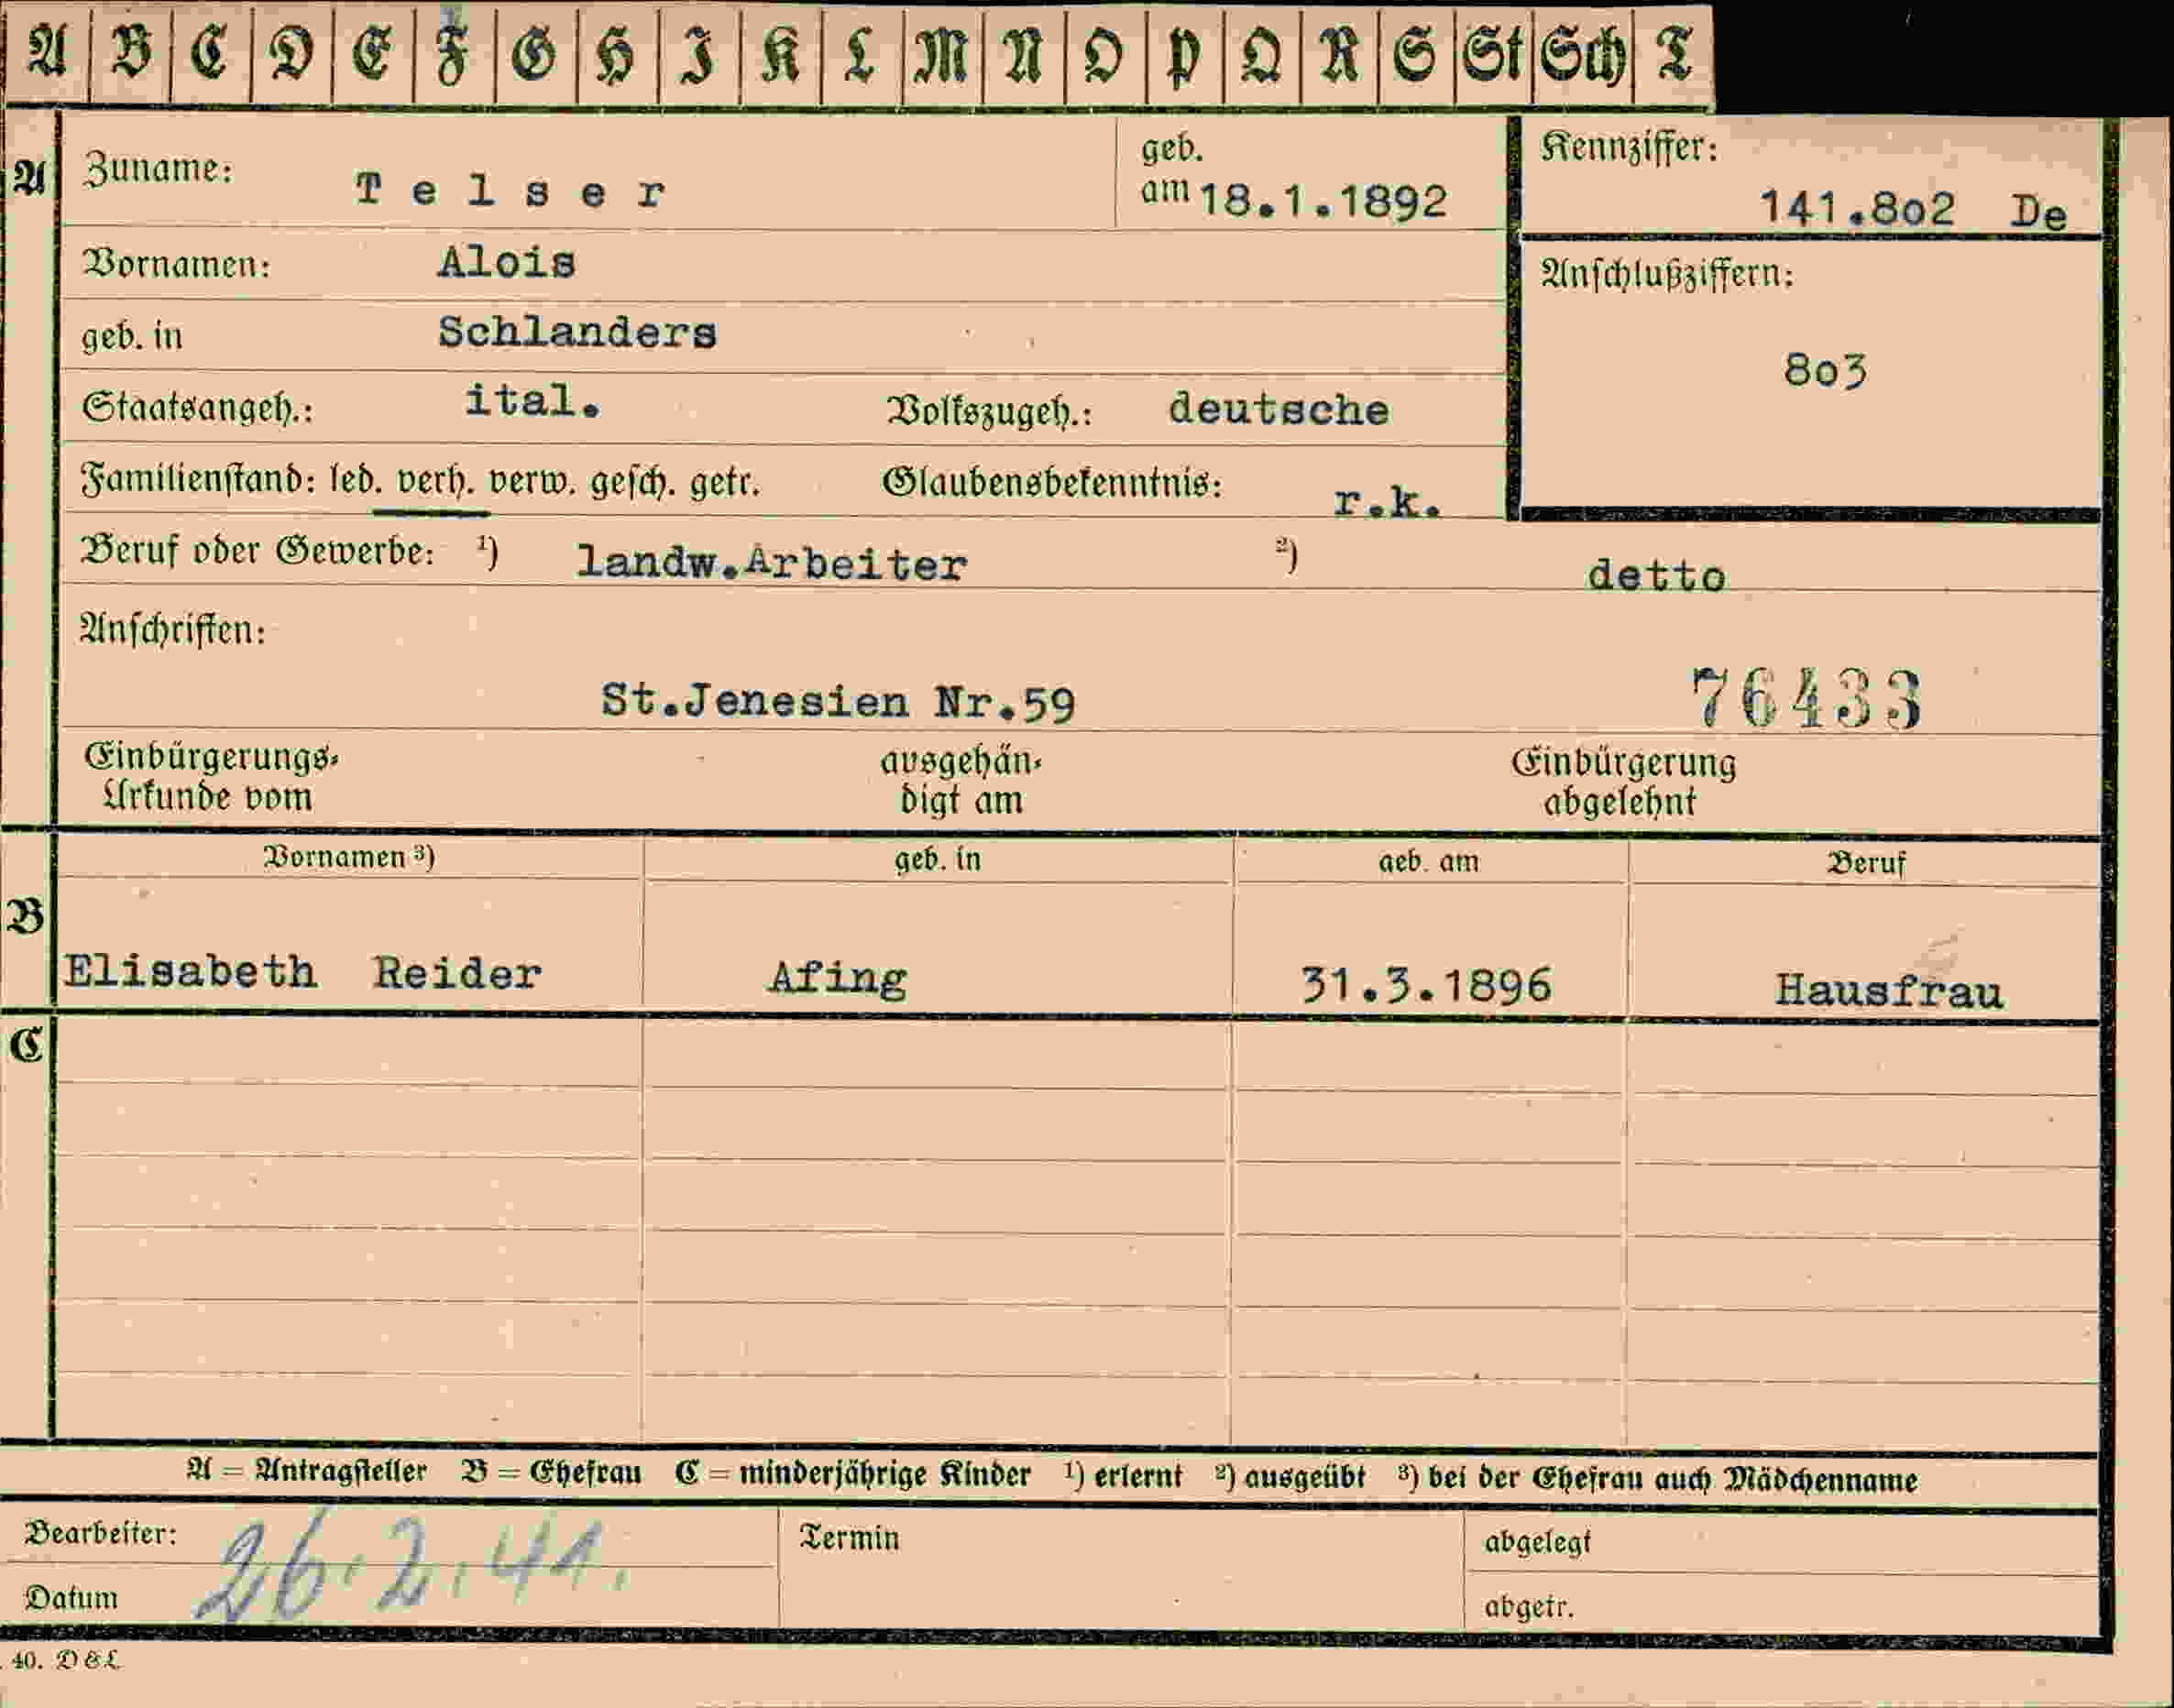 A B C D E F G H I K L M N O P Q R S St Sch T
A Zuname: Telser geb. am 18.1.1892 Kennziffer: 141.802 De
Vornamen: Alois Anschlußziffern:
geb. in Schlanders 803
Staatsangeh.: ital. Volkszugeh.: deutsche
Familienstand: led. verh. verw. gesch. getr. Glaubensbekenntnis: r.k.
Beruf oder Gewerbe: ¹) landw.Arbeiter ²) detto
Anschriften:
St.Jenesien Nr.59 76433
Einbürgerungs- ausgehän- Einbürgerung
Urkunde vom digt am abgelehnt
Vornamen ³) geb. in geb. am Beruf
B
Elisabeth Reider Afing 31.3.1896 Hausfrau
C
A = Antragsteller B = Ehefrau C = minderjährige Kinder ¹) erlernt ²) ausgeübt ³) bei der Ehefrau auch Mädchenname
Bearbeiter: 26.2.41. Termin abgelegt
Datum abgetr.
40. D&L